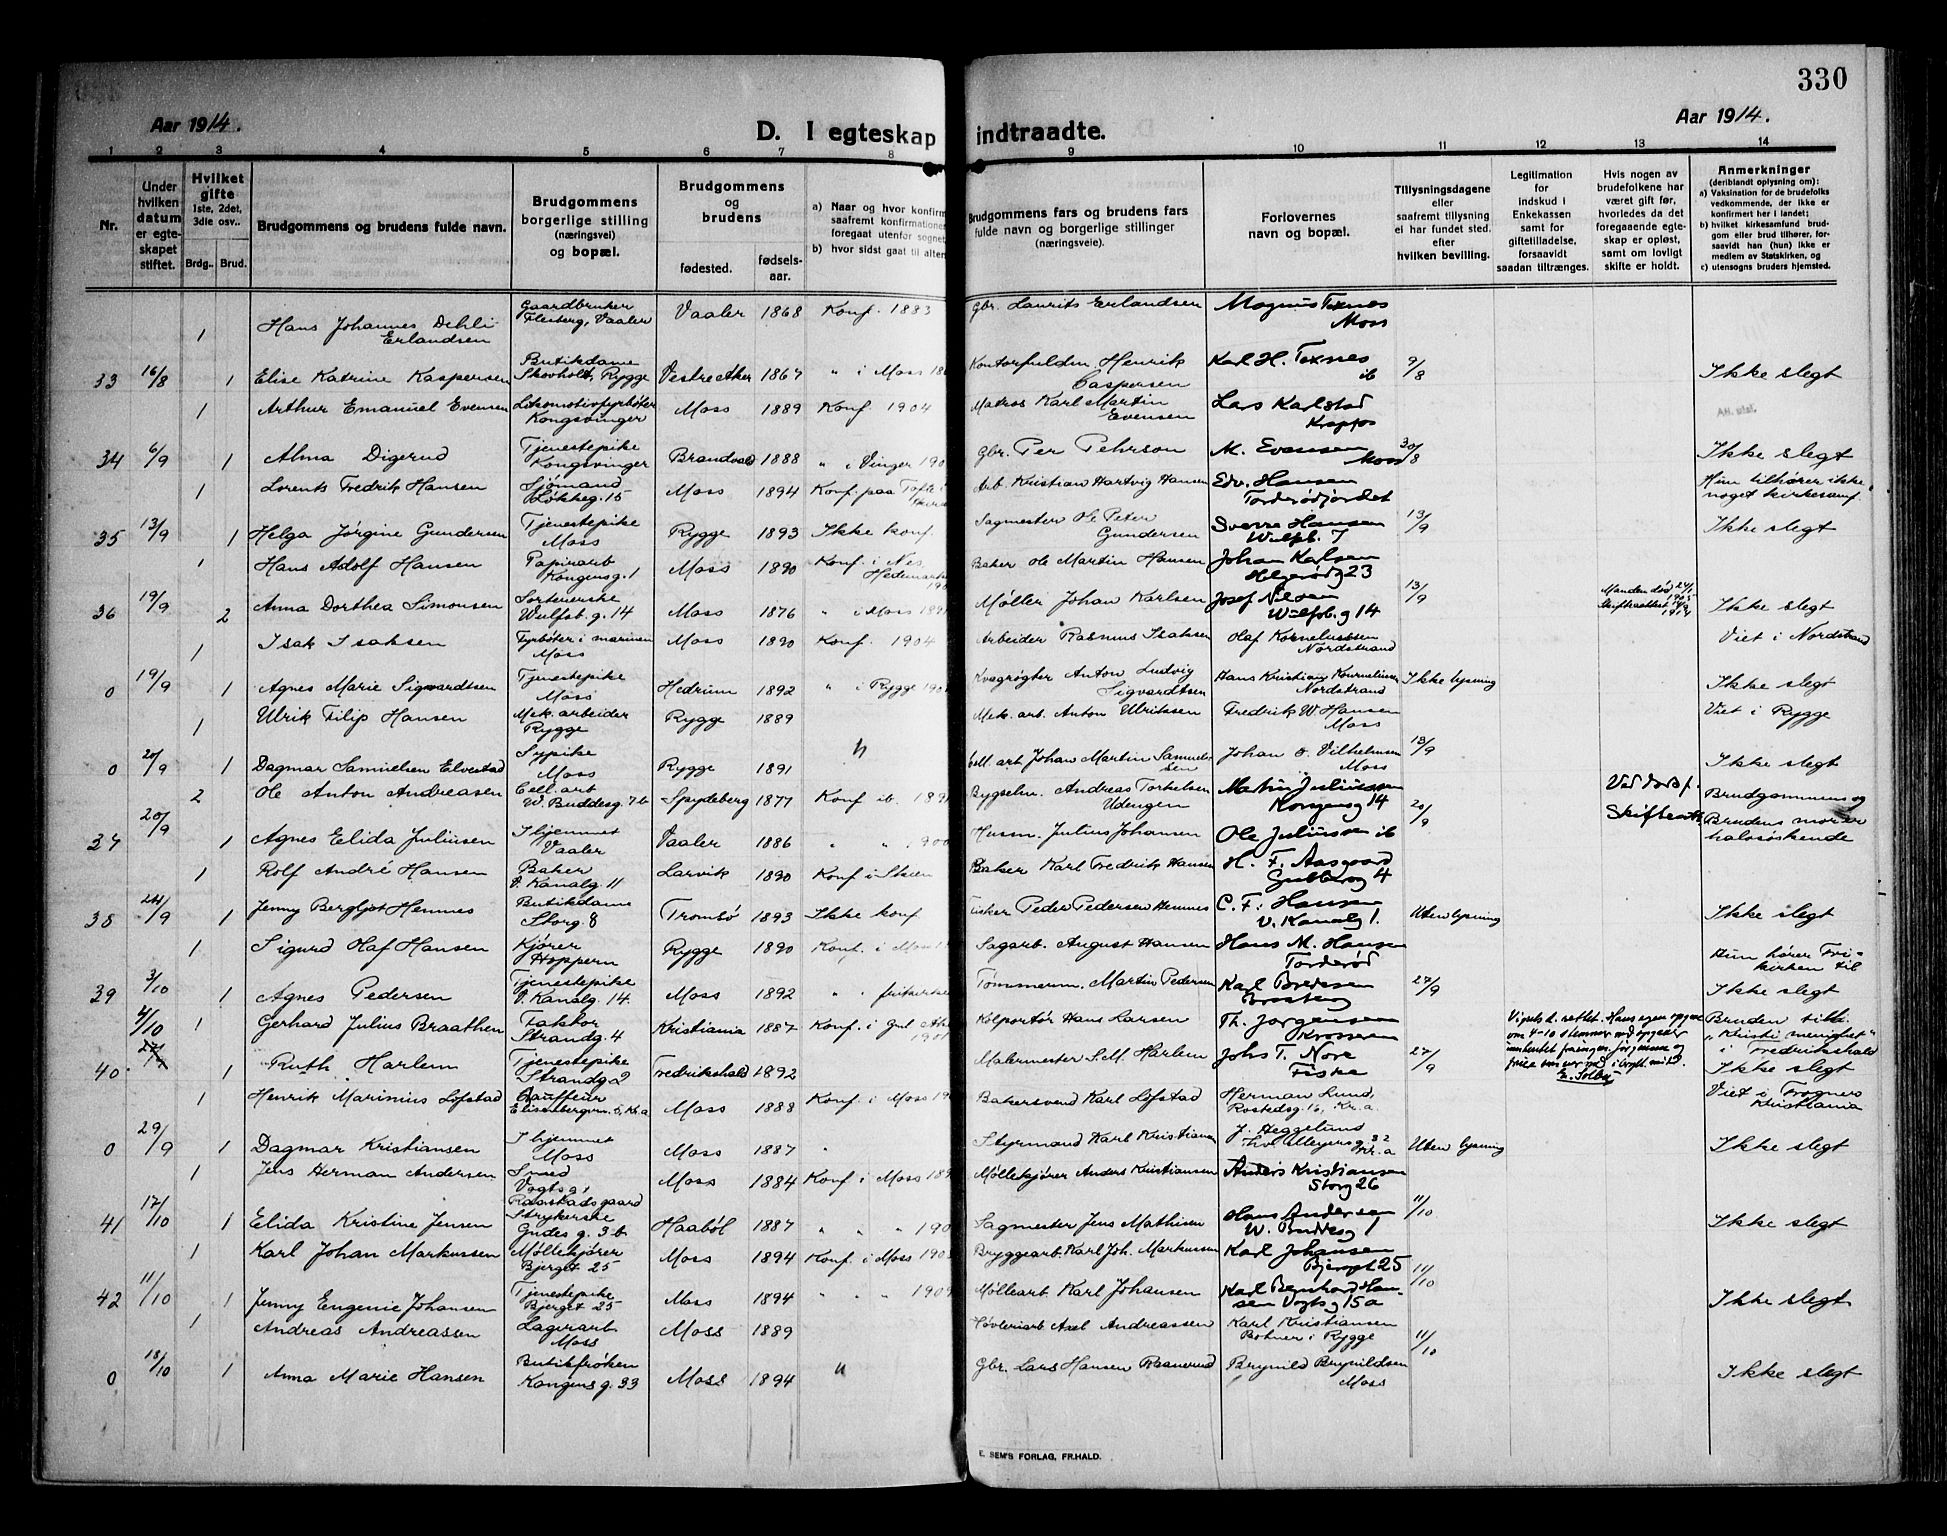 330
Aar 1914.
Aar 1914.
D. I egteskap indtraadte.
1 2 3 4 5 6 7 8 9 10 11 12 13 14
Nr.
Under hvilken datum er egteskapet stiftet.
Hvilket gifte
1ste, 2det, 3die osv.
Brdg. Brud.
Brudgommens og brudens fulde navn.
Brudgommens borgerlige stilling (næringsvei) og bopæl.
Brudgommens og brudens
fødested. fødselsaar.
a) Naar og hvor konfirm
saafremt konfirmationen
foregaat utenfor sognet
b) hvor sidst gaat til alters
Brudgommens fars og brudens fars fulde navn og borgerlige stillinger (næringsveie).
Forlovernes navn og bopæl.
Tillysningsdagene eller saafremt tillysning ei har fundet sted, efter hvilken bevilling.
Legitimation for indskud i Enkekassen samt for giftetilladelse, forsaavidt saadan tiltrænges.
Hvis nogen av brudefolkene har været gift før, hvorledes da det foregaaende egteskap er opløst, samt om lovligt skifte er holdt.
Anmerkninger
(deriblandt oplysning om):
a) Vaksination for de brudefolks vedkommende, der ikke er konfirmert her i landet;
b) hvilket kirkesamfund brudgom eller brud tilhører, forsaavidt han (hun) ikke er medlem av Statskirken, og
c) utensogns bruders hjemsted.
1 Hans Johannes Dehli Erlandsen Gaardbruker Fleisberg, Vaaler Vaaler 1868 Konf. 1883 Gbr. Laurits Erlandsen Magnus Texnes Moss
33 16/8 1 Elise Katrine Kaspersen Butikdame Skovholt, Rygge Vestre Aker 1867 " i Moss Kontorfuldm. Henrik Caspersen Karl H. Texnes ib 9/8 Ikke slegt
1 Arthur Emanuel Evensen Lokomotivfyrbøter Kongsvinger Moss 1889 Konf. 1904 Matros Karl Martin Evensen Lars Karlstad Krapfos
34 6/9 1 Alma Digerud Tjenestepike Kongsvinger Brandvald 1888 " i Vinger Gbr. Per Pehrson M. Evensen Moss 30/8 Ikke slegt
1 Lorents Fredrik Hansen Sjømand Løkkeg. 15 Moss 1894 Konf. paa Tofte i Arb. Kristian Hartvig Hansen Edv. Hansen Torderødjordet Hun tilhører ikke noget kirkesamf.
35 13/9 1 Helga Jørgine Gundersen Tjenestepike Moss Rygge 1893 Ikke konf. Sagmester Ole Peter Gundersen Sverre Hansen Wulfsb. 7 13/9 Ikke slegt
1 Hans Adolf Hansen Papirarb Kongensg. 1 Moss 1890 Konf. i Nes, Hedemarken Baker Ole Martin Hansen Johan Karlsen Helgerødg 23
36 19/9 2 Anna Dorthea Simonsen Sortererske Wulfsb. g. 14 Moss 1876 " i Moss Møller Johan Karlsen Josef Nilsen Wulfsb. g 14 13/9 Manden død Skifteattest Ikke slegt
1 Isak Isaksen Fyrbøter i marinen Moss Moss 1890 Konf. 1904 Arbeider Rasmus Isaksen Olaf Korneliussen Nordstrand Viet i Nordstrand
0 19/9 1 Agnes Marie Sigvardtsen Tjenestepike Moss Hedrum 1892 " i Rygge Kvægrøgter Anton Ludvig Sigvardtsen Hans Kristian Korneliussen Nordstrand Ikke lysning Ikke slegt
1 Ulrik Filip Hansen Mek. arbeider Rygge Rygge 1889 Mek. arb. Anton Ulriksen Fredrik W. Hansen Moss Viet i Rygge
0 20/9 1 Dagmar Samuelsen Elvestad Sypike Moss Rygge 1891 " Cell. arb Johan Martin Samuelsen Johan O. Vilhelmsen Moss 13/9 Ikke slegt
2 Ole Anton Andreasen Cell. arb W. Buddesg. 7b Spydeberg 1877 Konf ib. Bygselm. Andreas Torkelsen Udengen Martin Juliussen Kongensg 14 Ved død Skifteatt. Brudgommens og Brudens mor er halvsøskende
37 20/9 1 Agnes Elida Juliusen I hjemmet Vaaler Vaaler 1886 " " 1900 Husm. Julius Johansen Ole Juliussen ib 20/9
1 Rolf André Hansen Baker V. Kanalg. 11 Larvik 1890 Konf i Skien Baker Karl Fredrik Hansen H. F. Aasgaard 4
38 24/9 1 Jenny Bergljot Hemnes Butikdame Storg. 8 Tromsø 1893 Ikke konf Fisker Peder Pedersen Hemnes C. F. Hansen V. Kanalg 1. Uten lysning Ikke slegt
1 Sigurd Olaf Hansen Kjører Hoppern Rygge 1890 Konf. i Moss Sagarb. August Hansen Hans M. Hansen Torderød Hun hører Frikirken til
39 3/10 1 Agnes Pedersen Tjenestepike V. Kanalg. 14. Moss 1892 " " frikirken Tømmerm. Martin Pedersen Karl Bredesen 27/9 Ikke slegt
4/10 1 Gerhard Julius Braathen Faktor Strandg. 4 Kristiania 1887 Konf. i Kolportør Hans Larsen Th. Jørgensen Krosseren Bruden tilh. "Kristi menighet" i Fredrikshald
40. 1 Ruth Harlem Tjenestepike Strandg 2 Fredrikshald 1892 Malermester Harlem Johs T. Nore Fiske 27/9 E. Solby Ikke slegt
1 Henrik Marinius Løfstad Chauffeur Elisenbergvn. 5, Kr.a Moss 1888 Konf. i Moss Bakersvend Karl Løfstad Herman Lund, Rostedsg. 16, Kr. a. Viet i Frogner Kristiania
0 29/9 1 Dagmar Kristiansen I hjemmet Moss Moss 1887 " Styrmand Karl Kristiansen J. Heggelund Thv. Meyersg. 32 Kr. a Uten lysning Ikke slegt
1 Jens Herman Andersen Smed Vogtsg. Raastadsgaard Moss 1884 Konf. i Moss Møllekjører Anders Kristiansen Anders Kristiansen Storg 26
41 17/10 1 Elida Kristine Jensen Strykerske Gudes g. 3b Haabøl 1887 " " " Sagmester Jens Mathisen Hans Andersen W. Buddesg 1 11/10 Ikke slegt
1 Karl Johan Markussen Møllekjører Bjerget 25 Moss 1894 Konf. i Moss Bryggearb. Karl Joh. Markussen Karl Johansen Bjerget 25
42 11/10 1 Jenny Eugenie Johansen Tjenestepike Bjerget 25 Moss 1894 " " 1909 Møllearb. Karl Johansen Karl Bernhard Hansen Vogtsg 15 a 11/10 Ikke slegt
1 Andreas Andreassen Lagerarb. Moss Moss 1889 Høvleriarb. Axel Andreassen Karl Kristiansen Bohner i Rygge
0 18/10 1 Anna Marie Hansen Butikfrøken Kongens g. 33 Moss 1894 " Gbr. Lars Hansen Raanerud Brynild Brynildsen Moss 11/10 Ikke slegt
E. SEM'S FORLAG, FR.HALD.